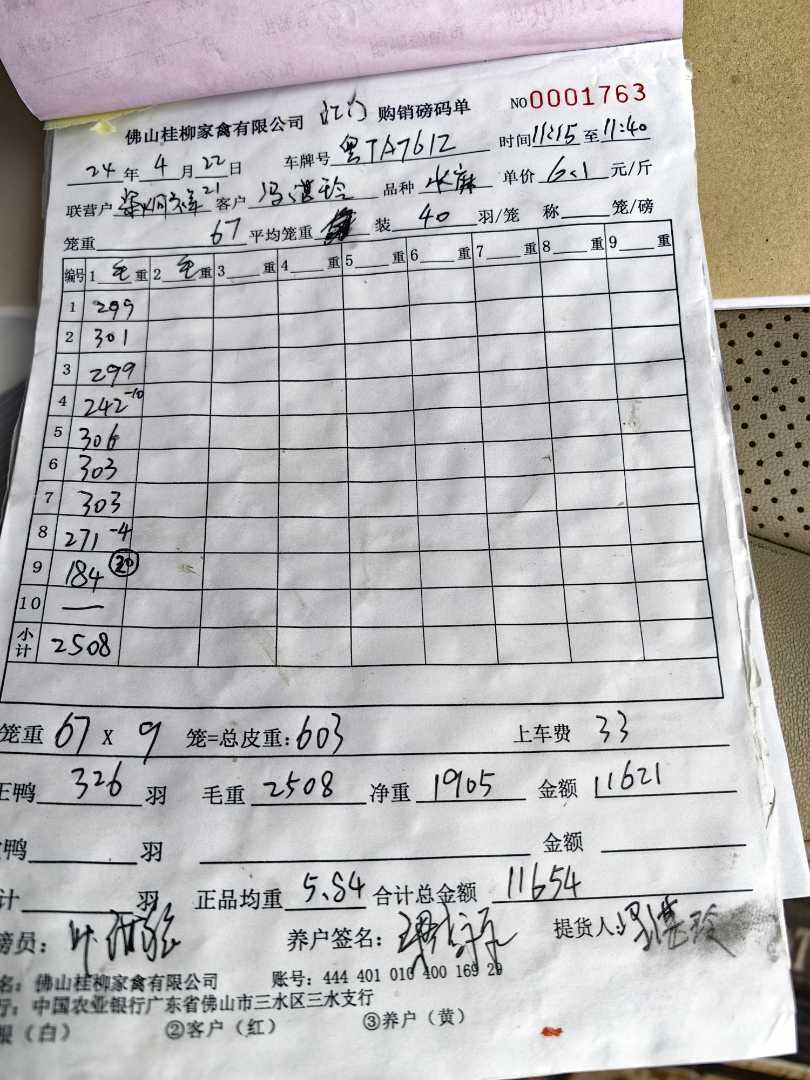 佛山桂柳家禽有限公司 江门 购销磅码单 NO 0001763
24年4月22日 车牌号 粤TA7612 时间11:15至11:40
联营户 21 客户 冯湛玲 品种 水麻 单价 6.1 元/斤
笼重 67 平均笼重 装 40 羽/笼 称 笼/磅
编号 1 毛 重 2 毛 重 3 重 4 重 5 重 6 重 7 重 8 重 9 重
1 299
2 301
3 299
4 242 -10
5 306
6 303
7 303
8 271 -4
9 184 20
10 —
小计 2508
笼重 67 X 9 笼=总皮重: 603 上车费 33
正鸭 326 羽 毛重 2508 净重 1905 金额 11621
鸭 羽 金额
计 羽 正品均重 5.84 合计总金额 11654
磅员: 养户签名: 提货人: 冯湛玲
名: 佛山桂柳家禽有限公司 账号: 444 401 010 400 169 29
行: 中国农业银行广东省佛山市三水区三水支行
（白） ②客户（红） ③养户（黄）